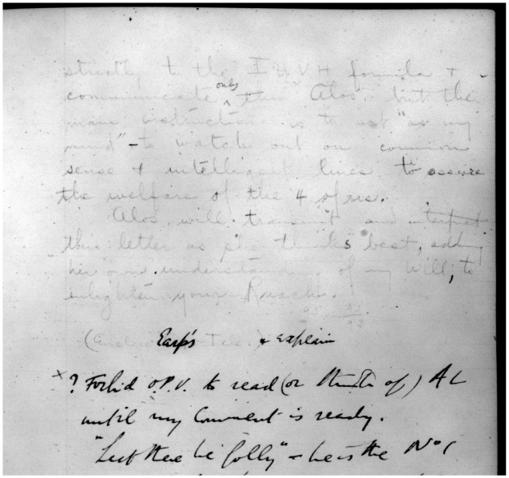 strictly to the I H V H formula +
only
communicate thru Alos. but the
main instruction is to act "as my
mind" - to watch out on common
sense + intelligent lines to assure
the welfare of the 4 of us.
Alos. will transmit and interpret
this letter as she thinks best, adding
her own understanding of my Will, to
enlighten your
Earp's + explain
x ? Forbid O.P.V. to read (or think of) AL
until my Comment is ready.
"Lest there be folly" - he is the No 1